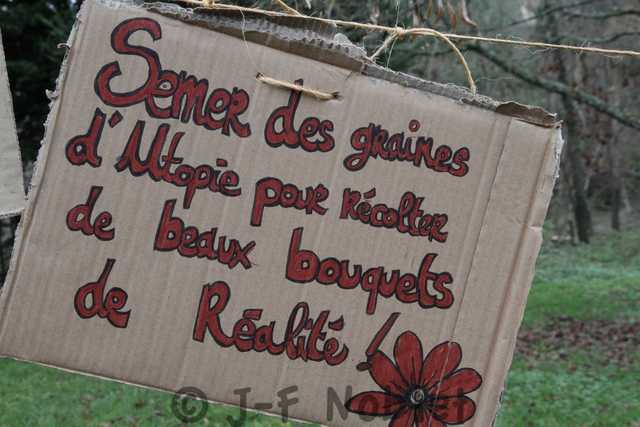 Semer des graines
d'Utopie pour Récolter
de beaux bouquets
de Réalité !
© J-F